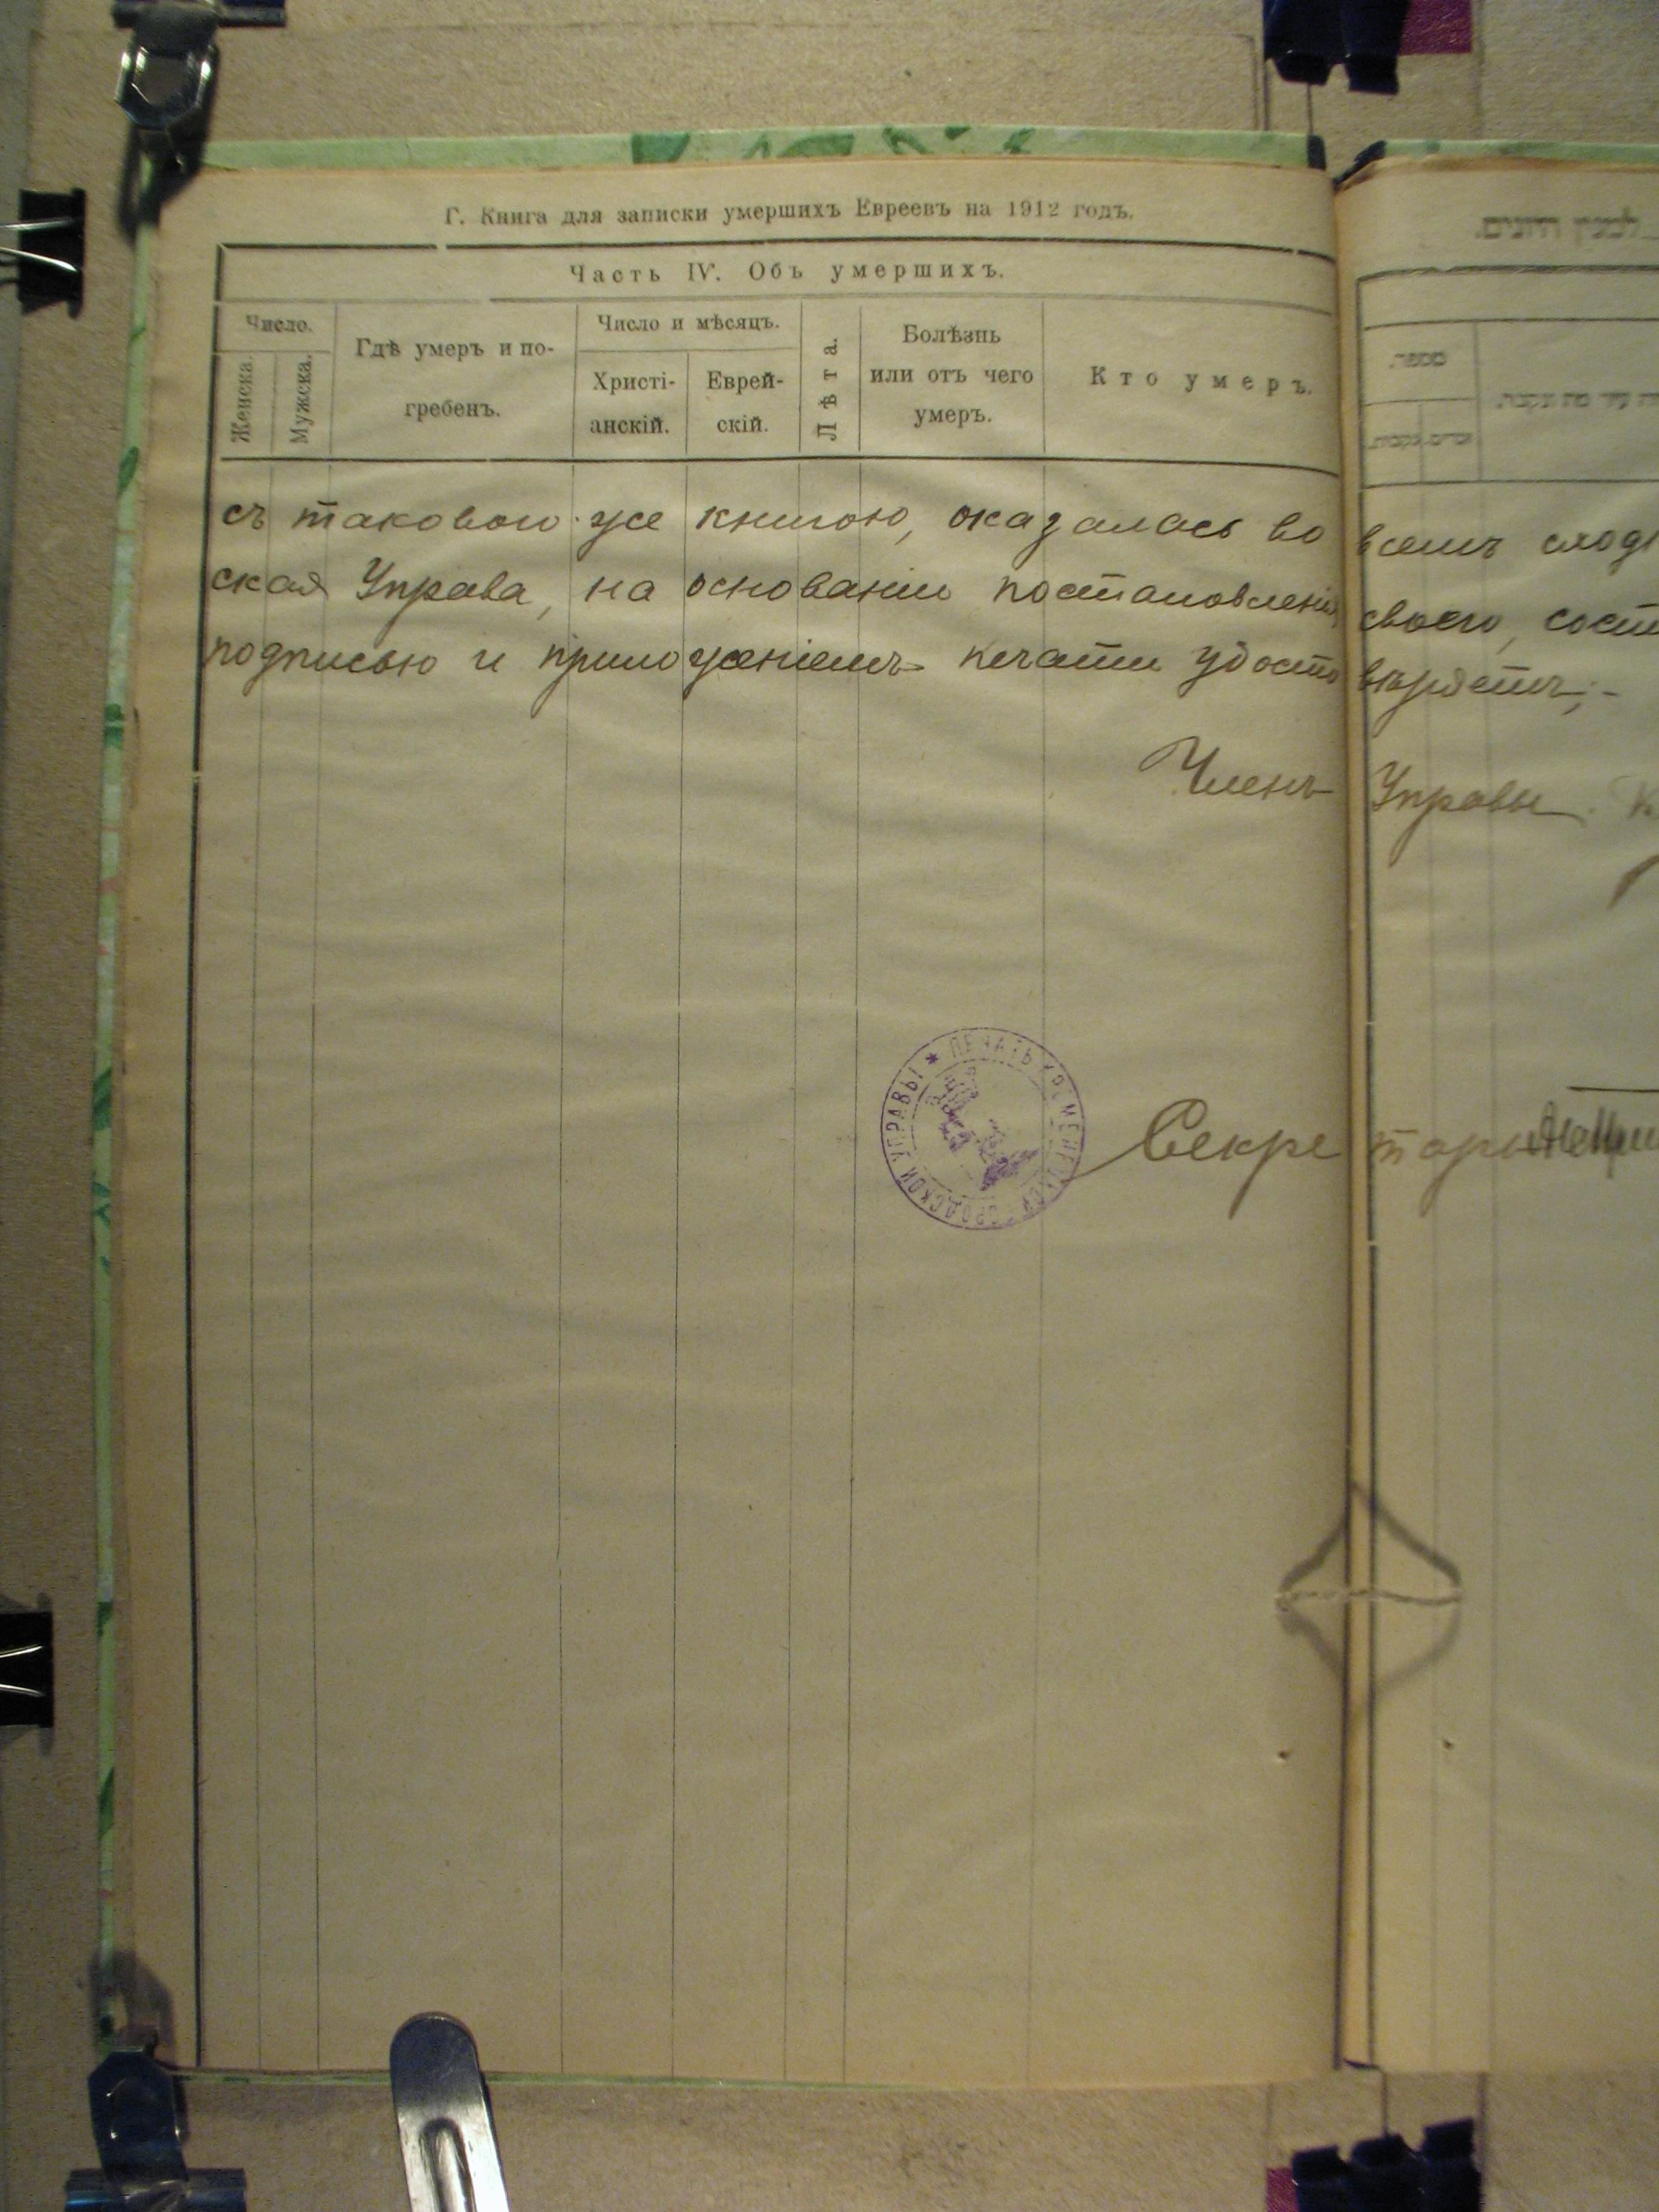 Г. Книга для записки умершихъ Евреевъ на 1912 годъ.
לבנין היונים.
Часть IV. Объ умершихъ.
Число.
Женска.
Мужска.
Гдѣ умеръ и по-
гребенъ.
Число и мѣсяцъ.
Христі-
анскій.
Еврей-
скій.
Лѣта.
Болѣзнь
или отъ чего
умеръ.
Кто умеръ.
מספר.
съ таковою же книгою, оказалась во всемъ сход
ская Управа, на основаніи постановленія своего, сост
подписью и приложеніемъ печати удостовѣряетъ;-
Членъ Управы
ПЕЧАТЬ КРЕМЕНЕЦКОЙ ГОРОДСКОЙ УПРАВЫ
Секретарь